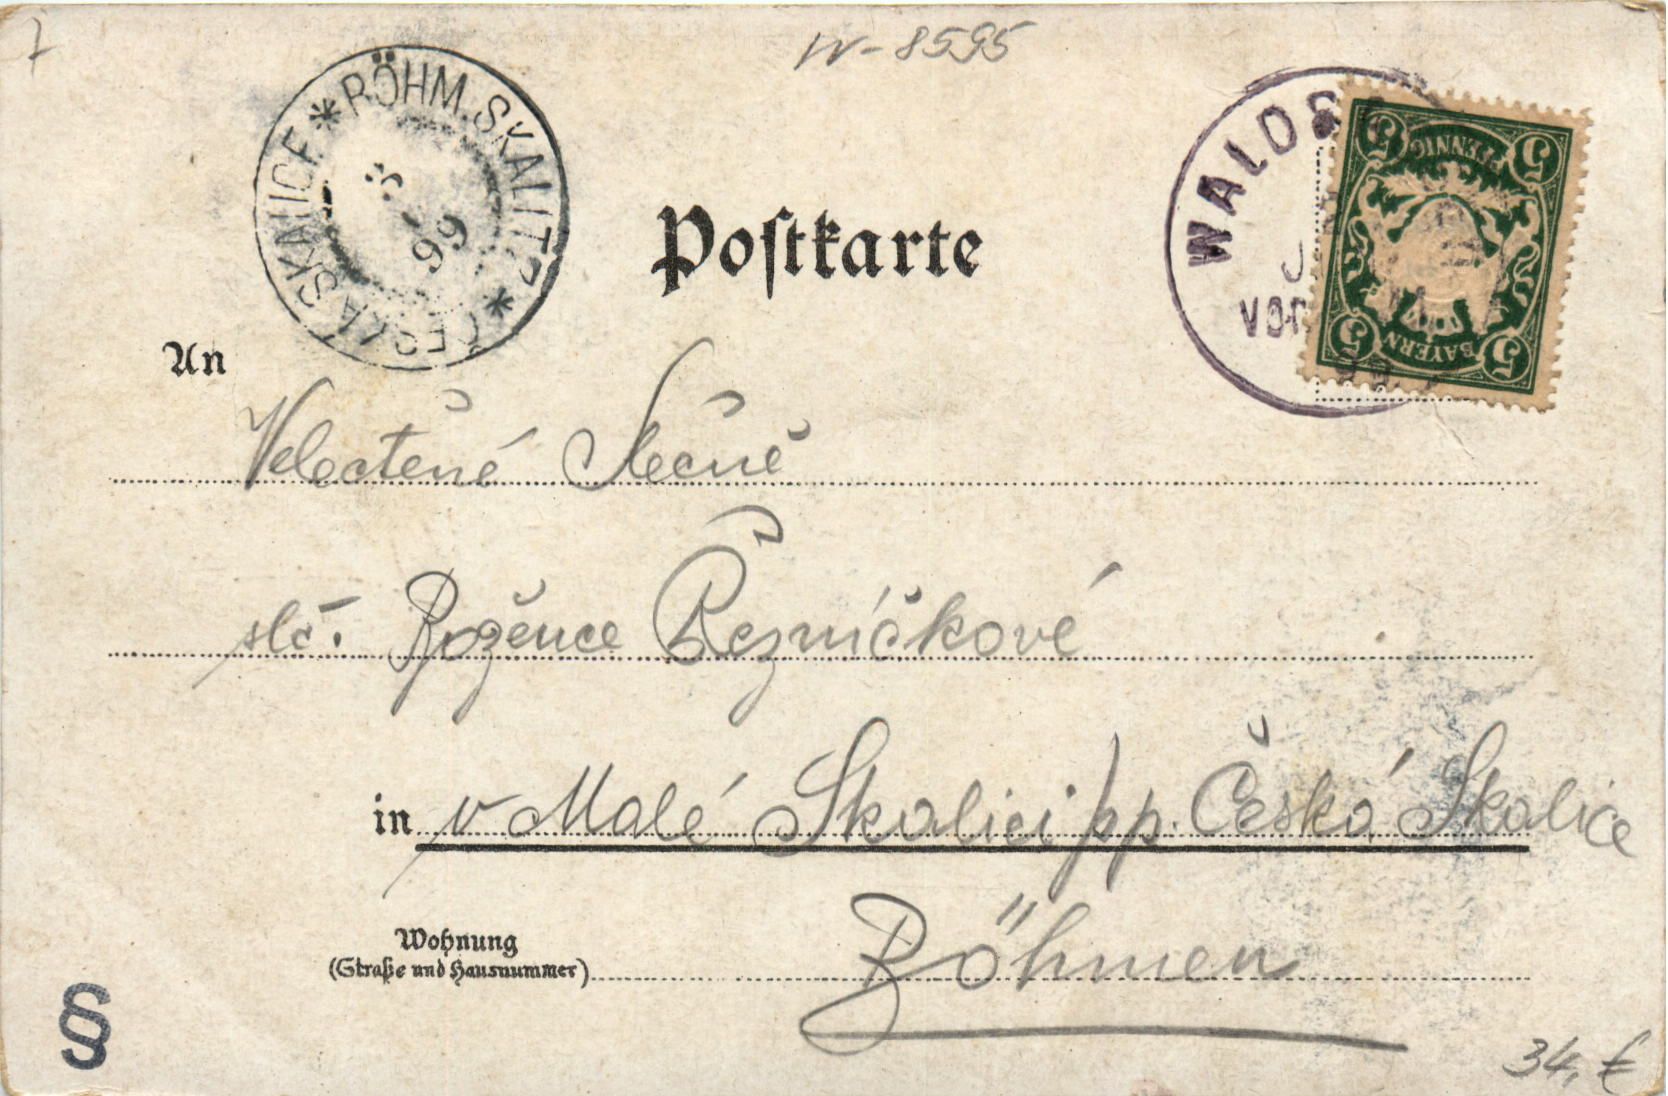 W-8595
* BÖHM. SKALITZ * ČESKÁ SKALICE
3
99
WALDS
VOR
5 PFENNIG 5
5 BAYERN 5
Postkarte
An
Velectěné Slečně
slč. Božence Řezníčkové
in v Malé Skalici pp. Česká Skalice
Wohnung
(Straße und Hausnummer)
Böhmen
§
34,€